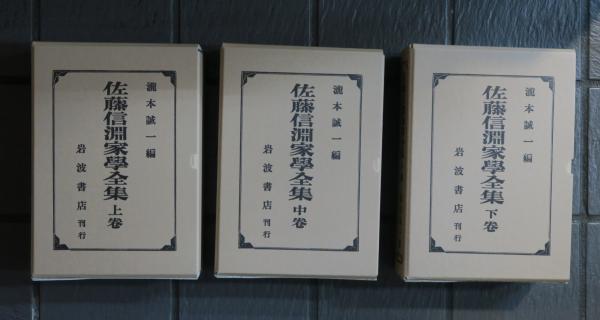 瀧本誠一編
佐藤信淵家學全集 上卷
岩波書店刊行
瀧本誠一編
佐藤信淵家學全集 中卷
岩波書店刊行
瀧本誠一編
佐藤信淵家學全集 下卷
岩波書店刊行